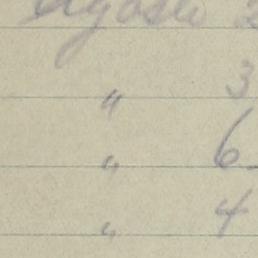 Agosto 2
" 3
" 6
" 4